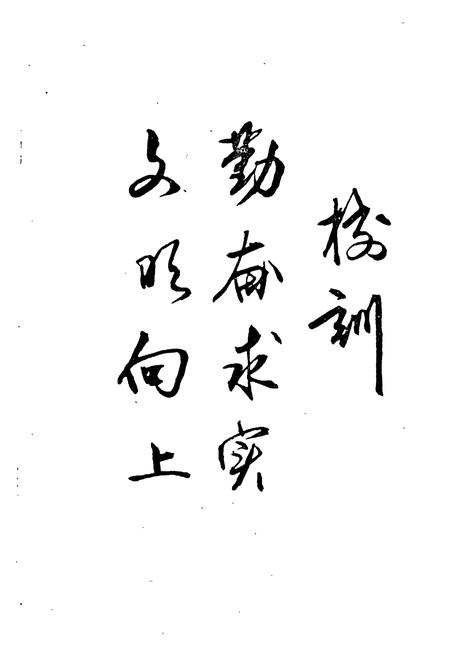 校訓
勤奋求实
文明向上